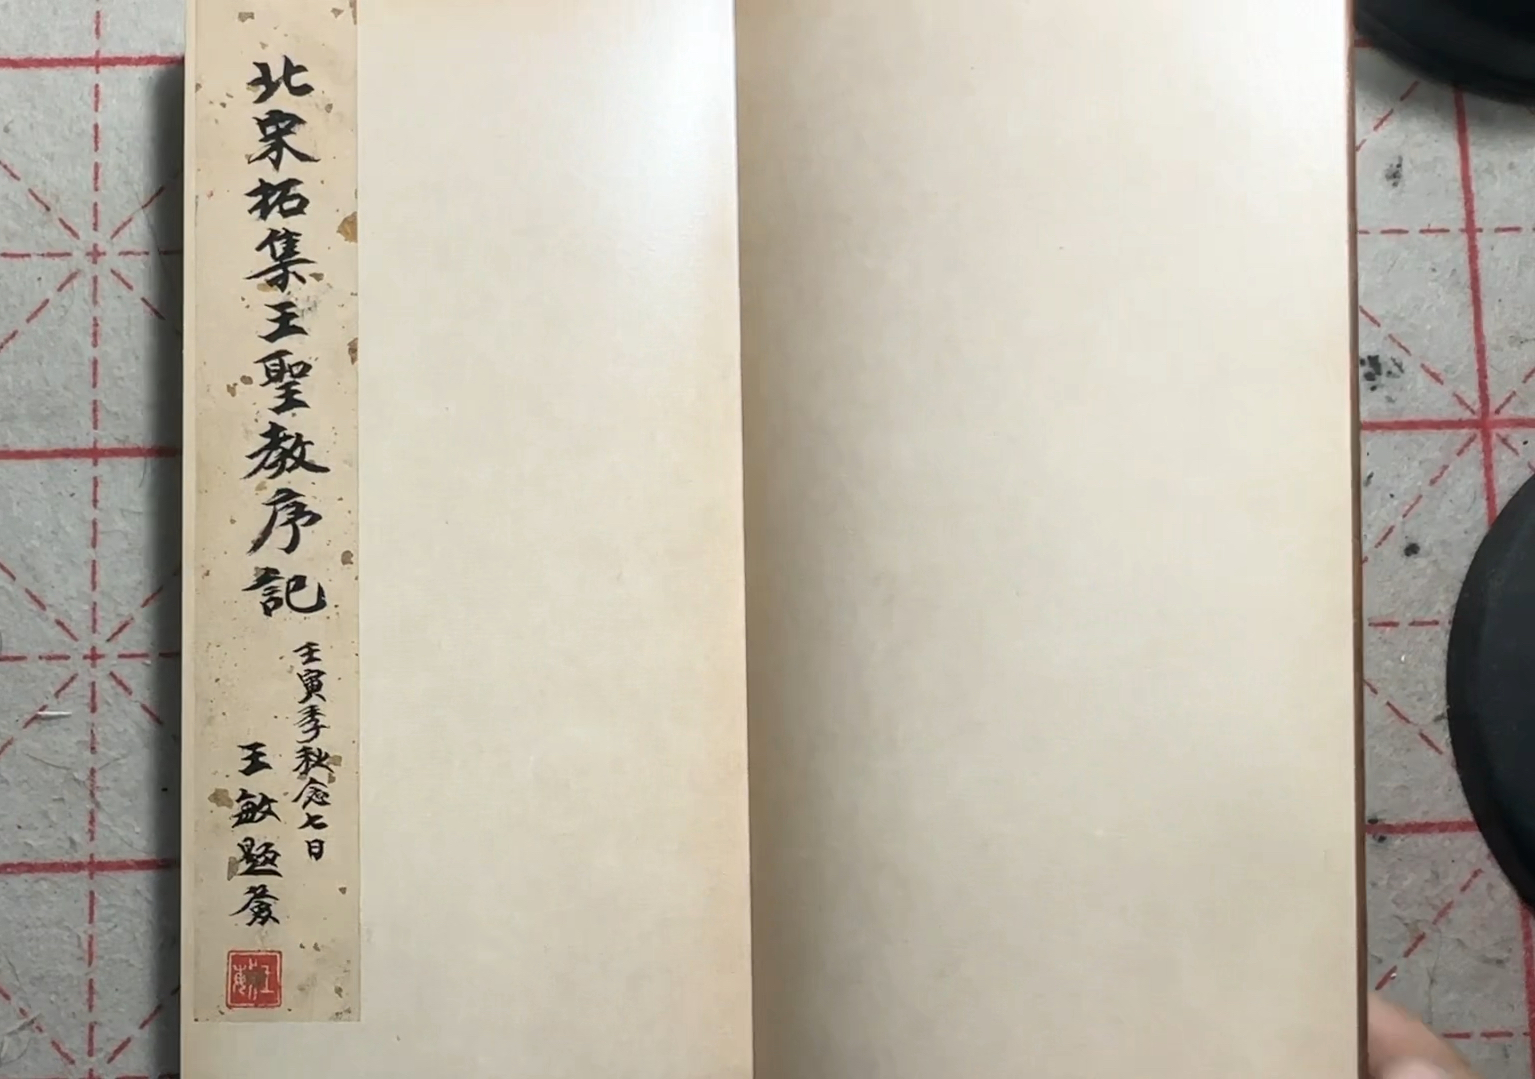 北宋拓集王聖教序記
壬寅季秋念七日
王敏題簽